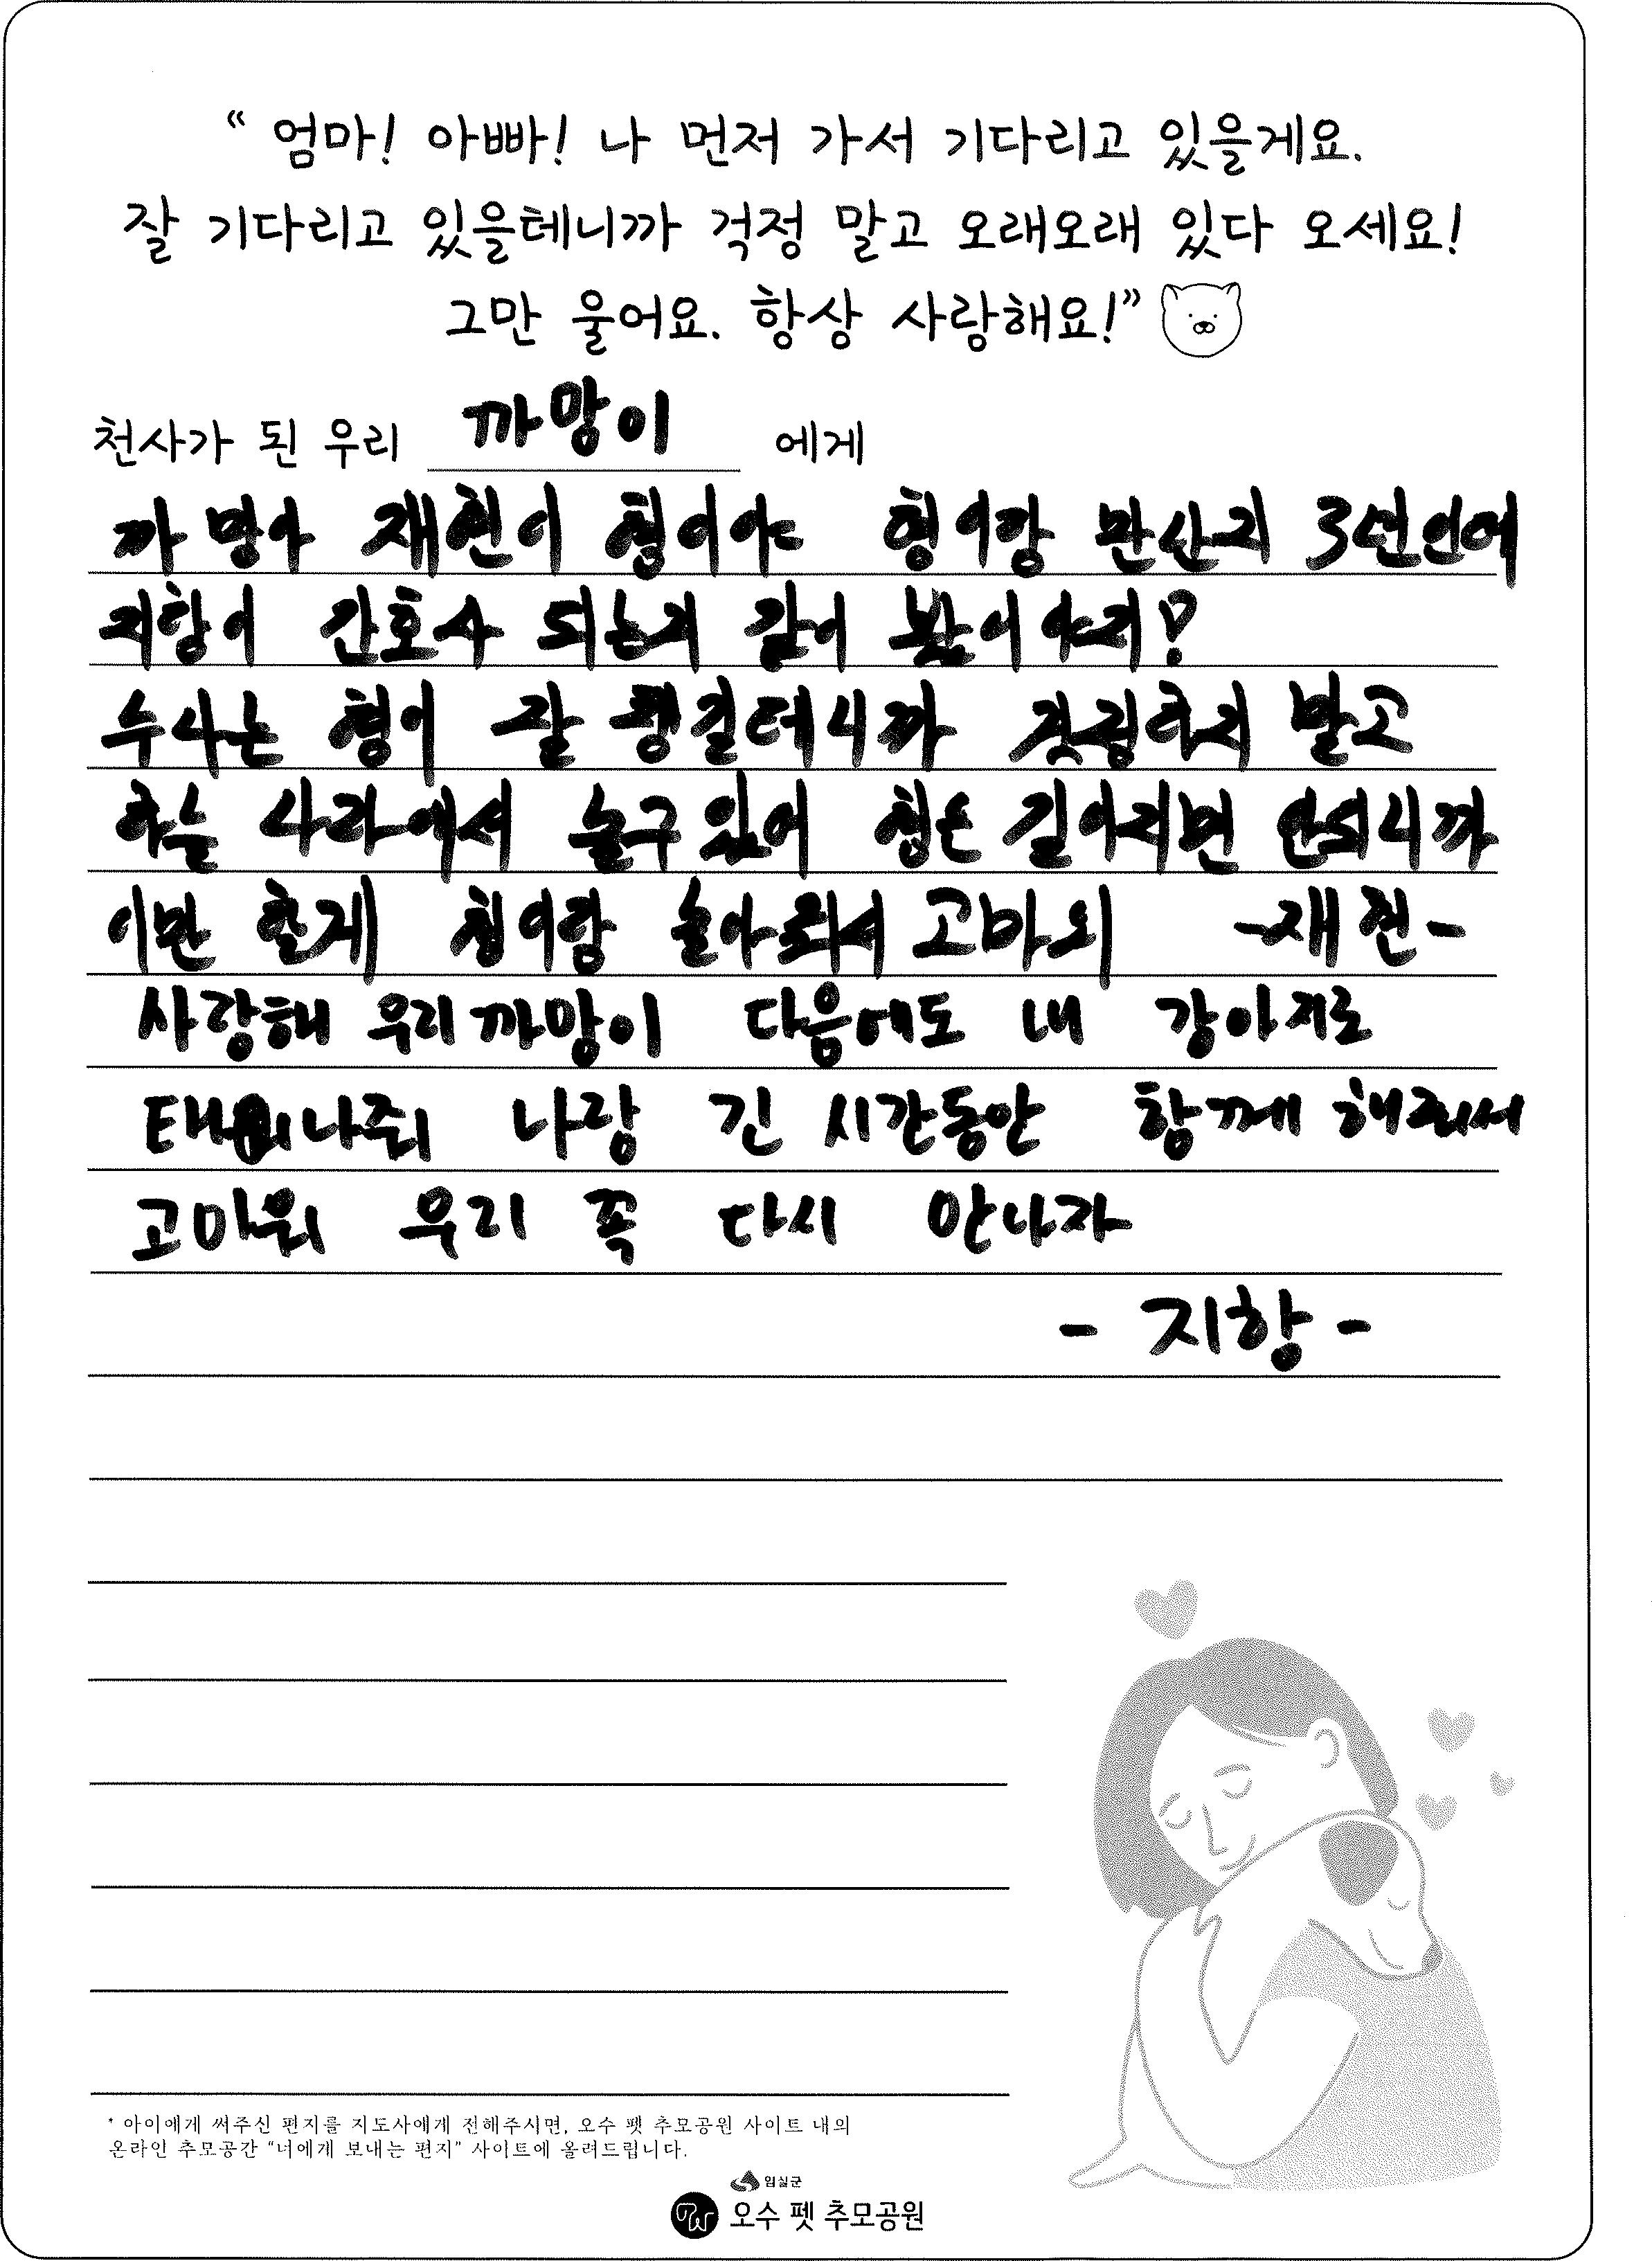 “ 엄마! 아빠! 나 먼저 가서 기다리고 있을게요.
잘 기다리고 있을테니까 걱정 말고 오래오래 있다 오세요!
그만 울어요. 항상 사랑해요!”
천사가 된 우리 까망이 에게
까망아 재현이 형이야 형이랑 만난지 3년인데
지항이 간호사 되는지 같이 봤어야지?
누나는 형이 잘 챙길테니까 걱정하지 말고
하늘 나라에서 놀구있어 형은 길어지면 안되니까
이만 할게 형이랑 놀아줘서 고마워 -재현-
사랑해 우리까망이 다음에도 내 강아지로
태어나줘 나랑 긴 시간동안 함께 해줘서
고마워 우리 꼭 다시 만나자
- 지항 -
* 아이에게 써주신 편지를 지도사에게 전해주시면, 오수 펫 추모공원 사이트 내의
온라인 추모공간 “너에게 보내는 편지” 사이트에 올려드립니다.
임실군
오수 펫 추모공원